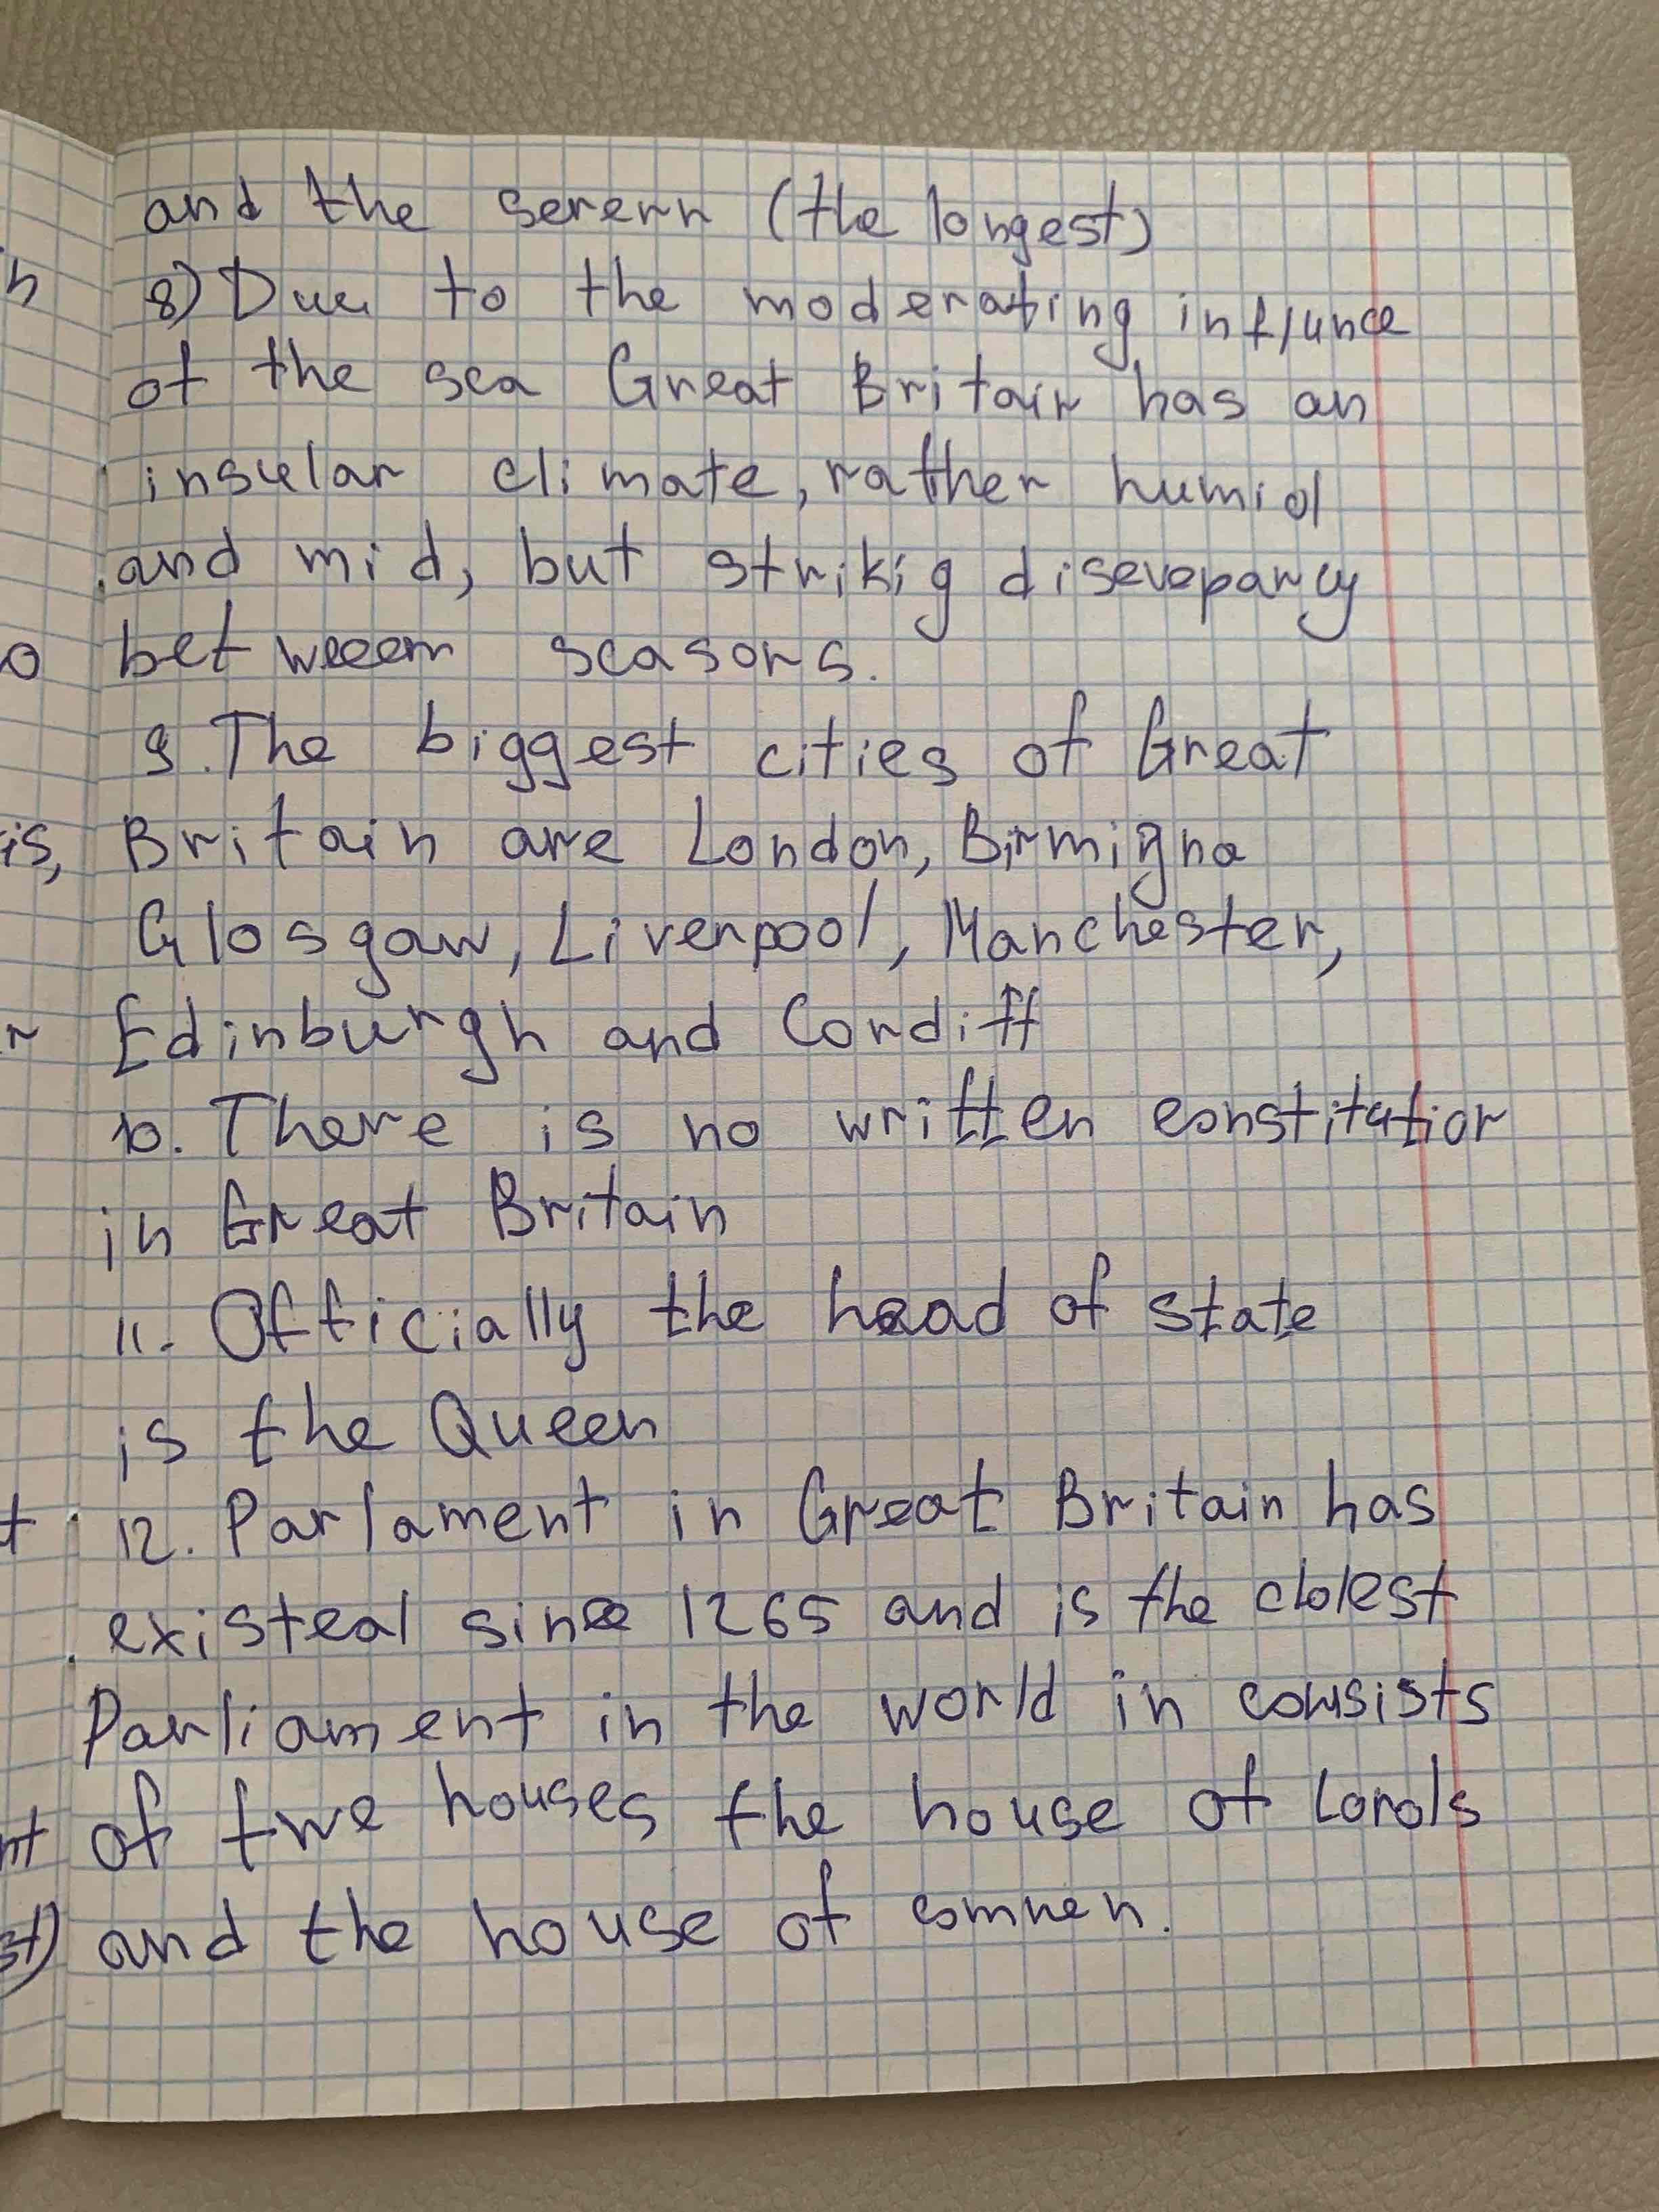 and the serern (the longest)
8) Due to the moderating influnce
of the sea Great Britain has an
insular climate, rather humid
and mid, but strikig disevepancy
bet weeem seasons.
9. The biggest cities of Great
Britain are London, Birmigna
Glosgaw, Liverpool, Manchester,
Edinburgh and Cordiff
10. There is no written constitution
in Great Britain
11. Officially the head of state
is the Queen
12. Parlament in Great Britain has
existed since 1265 and is the oldest
Parliament in the world in consists
of twe houses the house of Lords
and the house of commen.